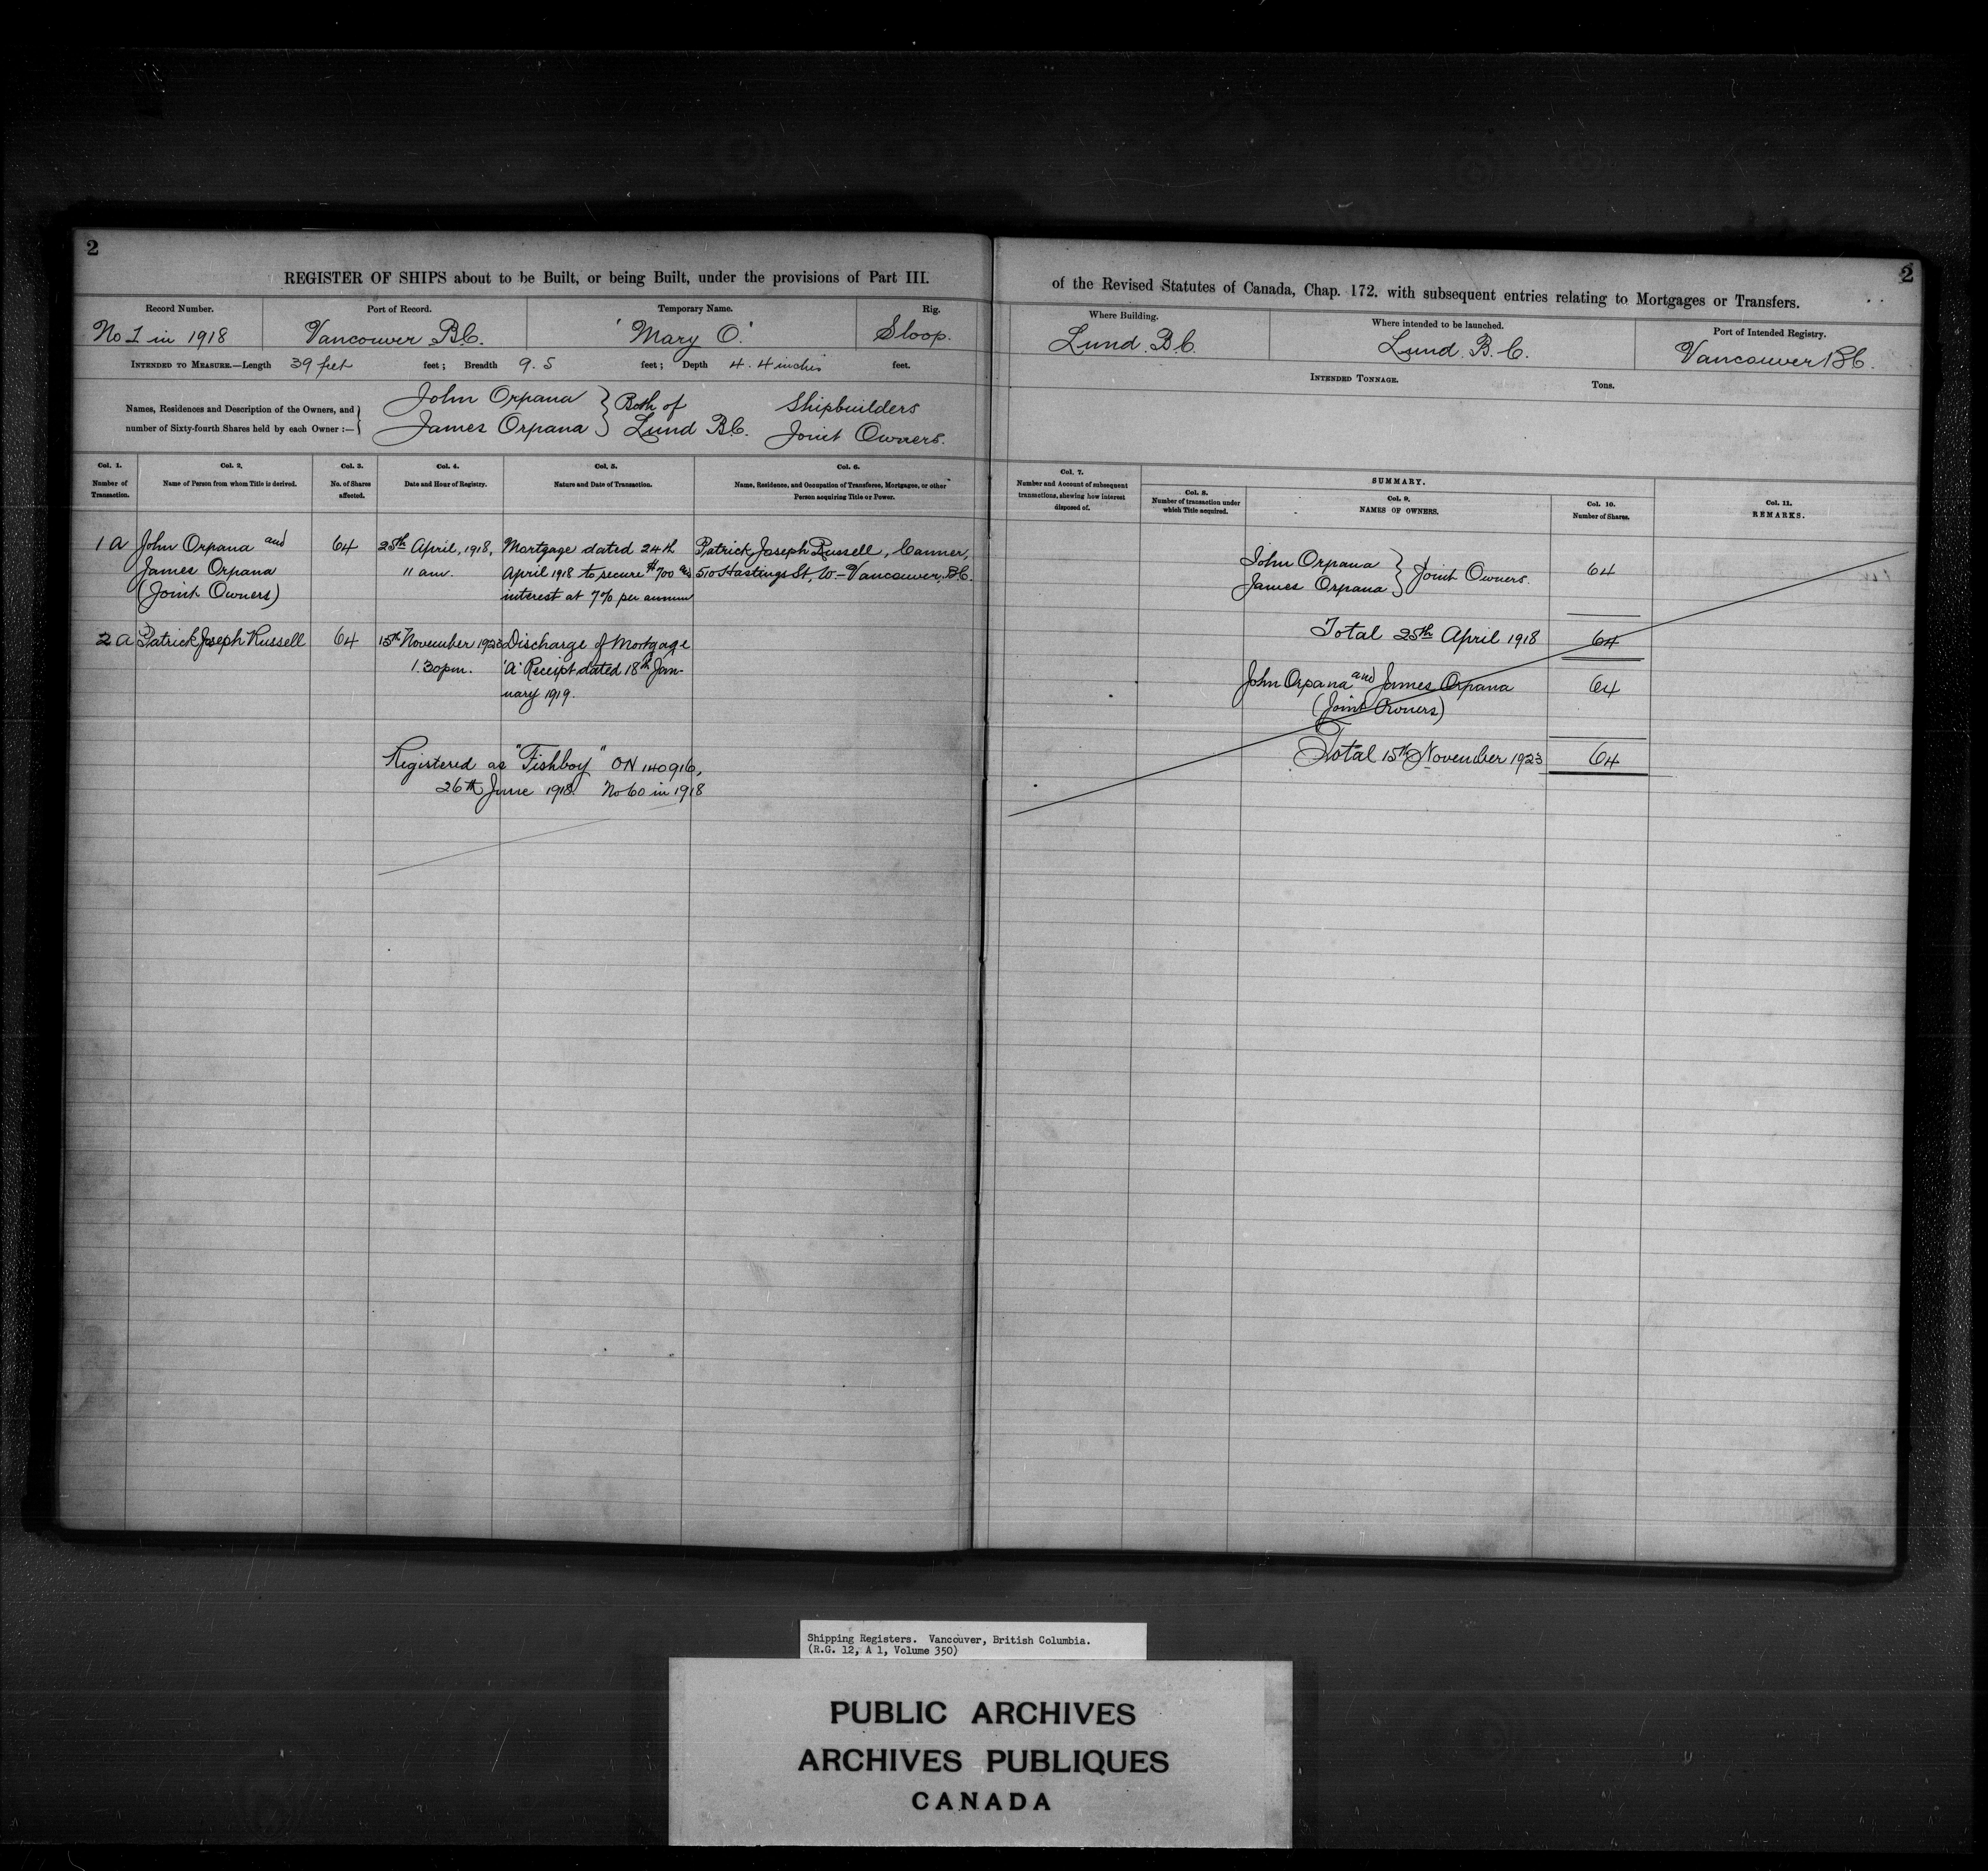 2
REGISTER OF SHIPS about to be Built, or being Built, under the provisions of Part III.
Record Number.
No 1 in 1918
Port of Record.
Vancouver B.C.
Temporary Name.
'Mary O.'
Rig.
Sloop.
INTENDED TO MEASURE.—Length 39 feet feet; Breadth 9.5 feet; Depth 4.4 inches feet.
Names, Residences and Description of the Owners, and
number of Sixty-fourth Shares held by each Owner :—
John Orpana } Both of Shipbuilders
James Orpana } Lund B.C. Joint Owners.
Col. 1.
Number of
Transaction.
Col. 2.
Name of Person from whom Title is derived.
Col. 3.
No. of Shares
affected.
Col. 4.
Date and Hour of Registry.
Col. 5.
Nature and Date of Transaction.
Col. 6.
Name, Residence, and Occupation of Transferee, Mortgagee, or other
Person acquiring Title or Power.
1 A John Orpana and 64 25th April, 1918, Mortgage dated 24th Patrick Joseph Russell, Canner,
James Orpana 11 am. April 1918 to secure $700 510 Hastings St, W - Vancouver, B.C.
(Joint Owners) interest at 7% per annum
2 A Patrick Joseph Russell 64 15th November 1923 Discharge of Mortgage
1.30pm. 'A' Receipt dated 18th Jan-
uary 1919.
Registered as "Fishboy" ON 140916,
26th June 1918. No 60 in 1918
2
of the Revised Statutes of Canada, Chap. 172. with subsequent entries relating to Mortgages or Transfers.
Where Building.
Lund. B.C.
Where intended to be launched.
Lund. B.C.
Port of Intended Registry.
Vancouver B.C.
INTENDED TONNAGE.
Tons.
Col. 7.
Number and Account of subsequent
transactions, shewing how interest
disposed of.
SUMMARY.
Col. 8.
Number of transaction under
which Title acquired.
Col. 9.
NAMES OF OWNERS.
Col. 10.
Number of Shares.
Col. 11.
REMARKS.
John Orpana } Joint Owners. 64
James Orpana }
Total 25th April 1918 64
John Orpana and James Orpana 64
(Joint Owners)
Total 15th November 1923 64
Shipping Registers. Vancouver, British Columbia.
(R.G. 12, A 1, Volume 350)
PUBLIC ARCHIVES
ARCHIVES PUBLIQUES
CANADA